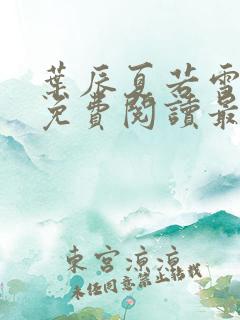 葉辰夏若雪
免費閱讀最
東宮涼涼
未經同意禁止轉載